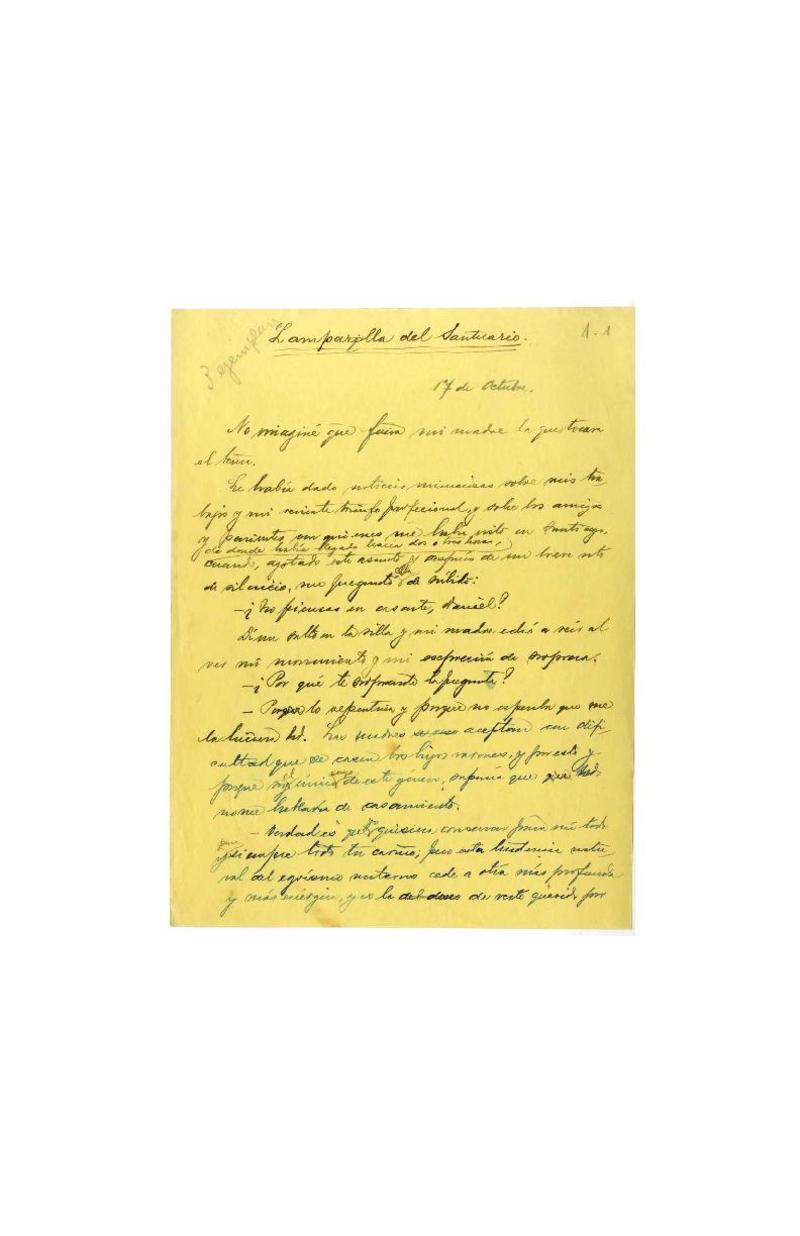 3 ejemplares
Lamparilla del Santuario.
1-1
17 de Octubre.
No imaginé que fuera mi madre la que tocara
el tema.
Le había dado noticias minuciosas sobre mis tra
bajos y mi reciente triunfo profesional, y sobre los amigos
y parientes con quienes me había visto en Santiago,
de donde había llegado hacía dos o tres horas,
cuando, agotado este asunto y después de un breve rato
de silencio, me preguntó ella de súbito:
—¿No piensas en casarte, Daniel?
Di un salto en la silla y mi madre echó a reir al
ver mi movimiento y mi expresión de sorpresa.
—¿Por qué te sorprende la pregunta?
— Por lo repentina y porque no esperaba que me
la hiciera Ud. Las madres aceptan con difi
cultad que se casen los hijos varones, y por esto y
porque soy el único de este género, suponía que Ud.
no me hablaría de casamiento.
— Verdad es que yo quisiera conservar para mí todo
y para siempre todo tu cariño, pero esta tendencia natu
ral del egoísmo materno cede a otra más profunda
y más enérgica, y es la del deseo de verte querido por